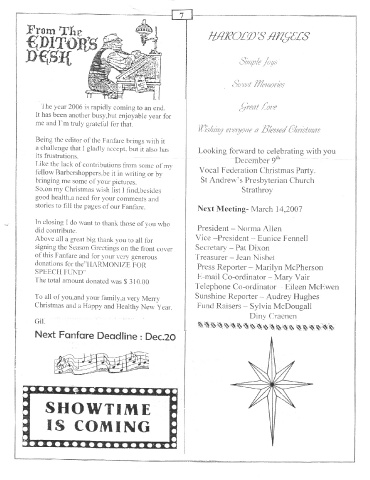 7
From The
EDITOR'S
DESK
The year 2006 is rapidly coming to an end.
It has been another busy,but enjoyable year for
me and I'm truly grateful for that.
Being the editor of the Fanfare brings with it
a challenge that I gladly accept, but it also has
its frustrations.
Like the lack of contributions from some of my
fellow Barbershoppers,be it in writing or by
bringing me some of your pictures.
So,on my Christmas wish list I find,besides
good health,a need for your comments and
stories to fill the pages of our Fanfare.
In closing I do want to thank those of you who
did contribute.
Above all a great big thank you to all for
signing the Season Greetings on the front cover
of this Fanfare and for your very generous
donations for the"HARMONIZE FOR
SPEECH FUND"
The total amount donated was $ 310.00
To all of you,and your family,a very Merry
Christmas and a Happy and Healthy New Year.
Gil.
Next Fanfare Deadline : Dec.20
SHOWTIME
IS COMING
HAROLD'S ANGELS
Simple Joys
Sweet Memories
Great Love
Wishing everyone a Blessed Christmas
Looking forward to celebrating with you
December 9th
Vocal Federation Christmas Party.
St Andrew's Presbyterian Church
Strathroy
Next Meeting- March 14,2007
President – Norma Allen
Vice –President – Eunice Fennell
Secretary – Pat Dixon
Treasurer – Jean Nisbet
Press Reporter – Marilyn McPherson
E-mail Co-ordinator – Mary Vair
Telephone Co-ordinator – Eileen McEwen
Sunshine Reporter – Audrey Hughes
Fund Raisers – Sylvia McDougall
Diny Craenen